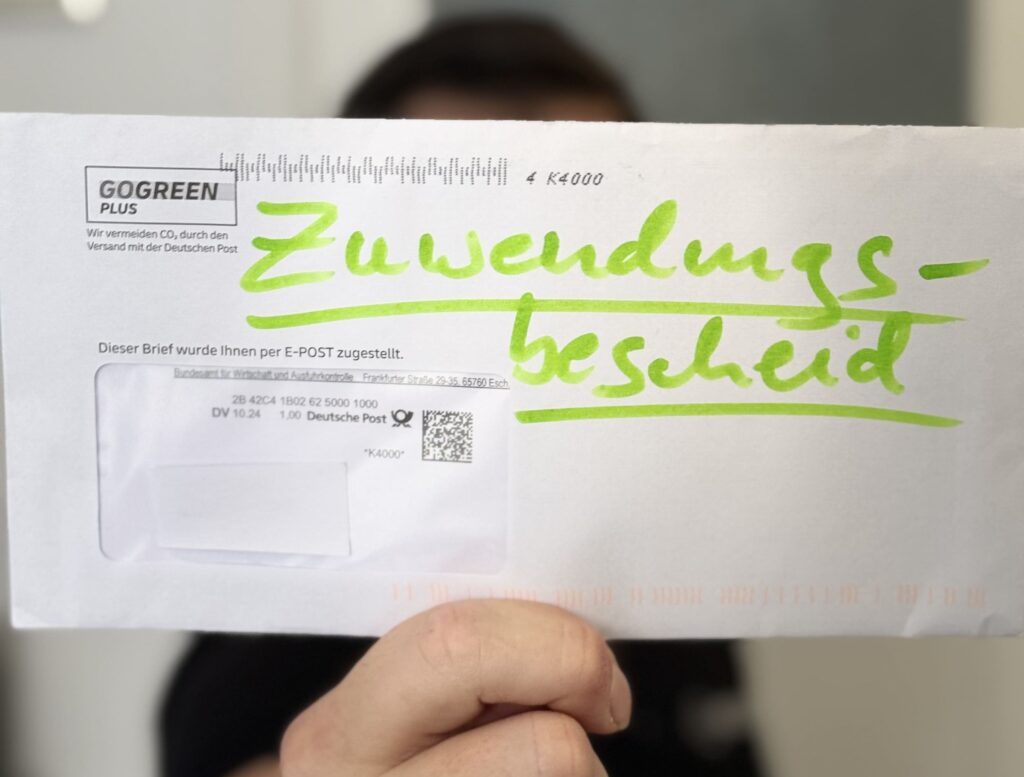 4 K4000
GOGREEN
PLUS
Wir vermeiden CO₂ durch den
Versand mit der Deutschen Post
Zuwendungs-
bescheid
Dieser Brief wurde Ihnen per E-POST zugestellt.
Bundesamt für Wirtschaft und Ausfuhrkontrolle Frankfurter Straße 29-35, 65760 Esch
2B 42C4 1B02 62 5000 1000
DV 10.24 1,00 Deutsche Post
*K4000*